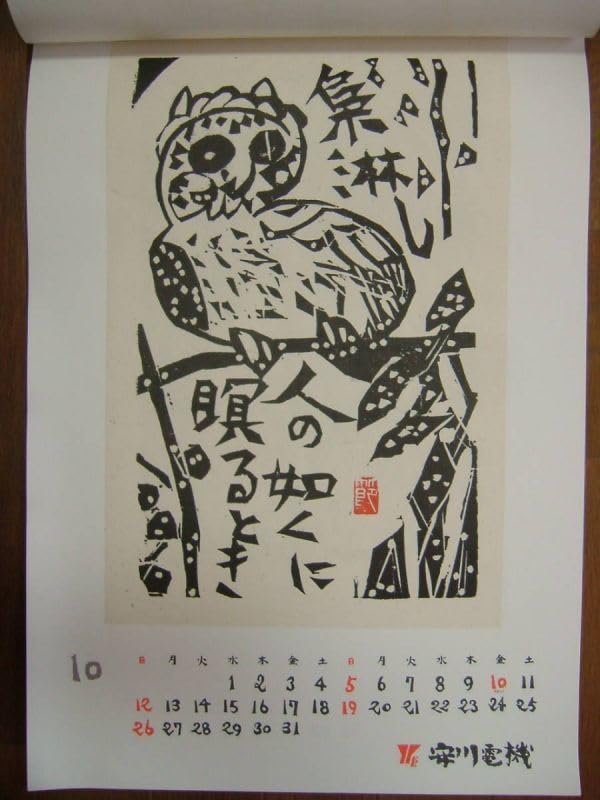 梟
淋し
人の如くに
瞑るとき
10
日 月 火 水 木 金 土 日 月 火 水 木 金 土
1 2 3 4 5 6 7 8 9 10 11
12 13 14 15 16 17 18 19 20 21 22 23 24 25
26 27 28 29 30 31
安川電機